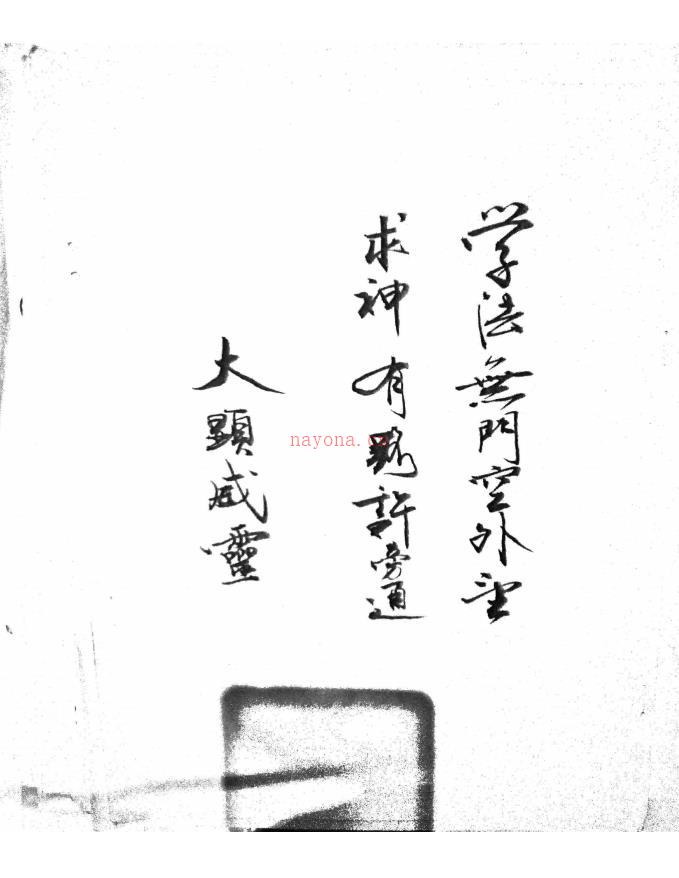 学法無門空外望
求神有路許旁通
大顯威靈
nayona.cn